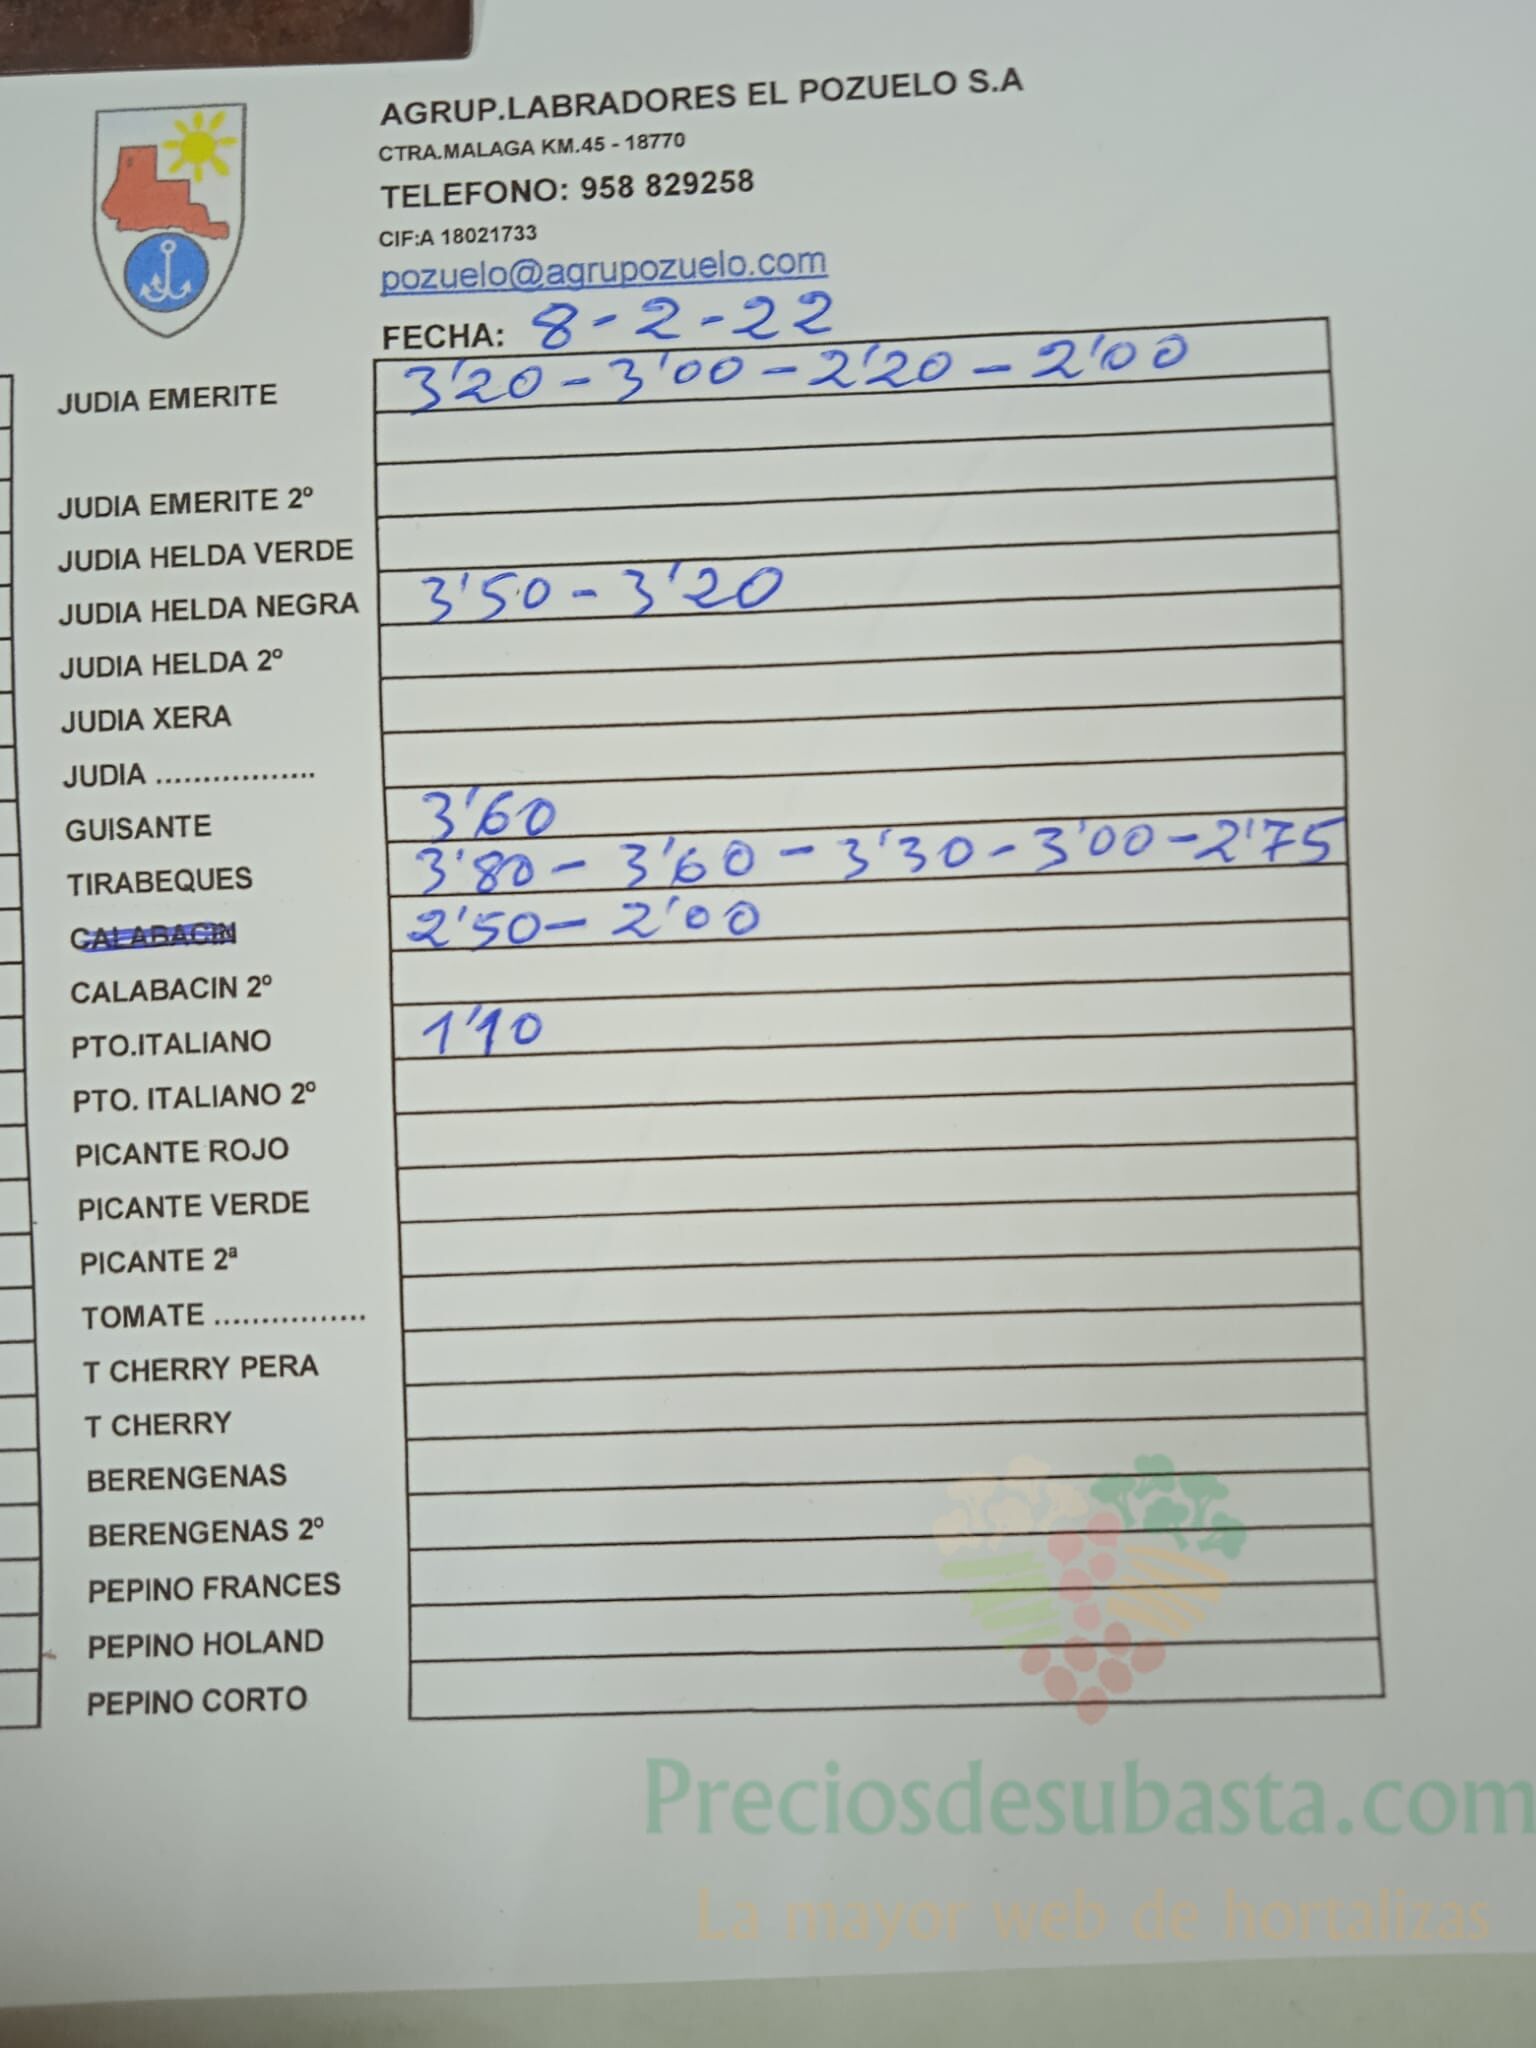 AGRUP.LABRADORES EL POZUELO S.A
CTRA.MALAGA KM.45 - 18770
TELEFONO: 958 829258
CIF:A 18021733
pozuelo@agrupozuelo.com
FECHA: 8-2-22
JUDIA EMERITE 3'20 - 3'00 - 2'20 - 2'00
JUDIA EMERITE 2º
JUDIA HELDA VERDE
JUDIA HELDA NEGRA 3'50 - 3'20
JUDIA HELDA 2º
JUDIA XERA
JUDIA .................
GUISANTE 3'60
TIRABEQUES 3'80 - 3'60 - 3'30 - 3'00 - 2'75
CALABACIN 2'50 - 2'00
CALABACIN 2º
PTO.ITALIANO 1'10
PTO. ITALIANO 2º
PICANTE ROJO
PICANTE VERDE
PICANTE 2ª
TOMATE ................
T CHERRY PERA
T CHERRY
BERENGENAS
BERENGENAS 2º
PEPINO FRANCES
PEPINO HOLAND
PEPINO CORTO
Preciosdesubasta.com
La mayor web de hortalizas